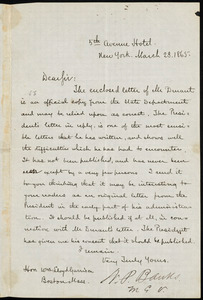 5th Avenue Hotel
New York. March 28. 1865.
Dear Sir:
The enclosed letter of Mr Durant
is an official copy from the State Department
and may be relied upon as correct. The Presi-
dent's letter in reply, is one of the most sensible
letters that he has written, and shows well
the difficulties which he has had to encounter.
It has not been published, and has never
been except by a very few persons. I send
it to you thinking that it may be interesting to
your readers as an original letter from the
President in the early part of his administra-
tion. It should be published if at all, in con-
nection with Mr Durant's letter. The President
has given me his consent that it should be published
I remain
Very Truly Yours,
Hon Wm Lloyd Garrison
Boston Mass.
N. P. Banks
M. G. V.